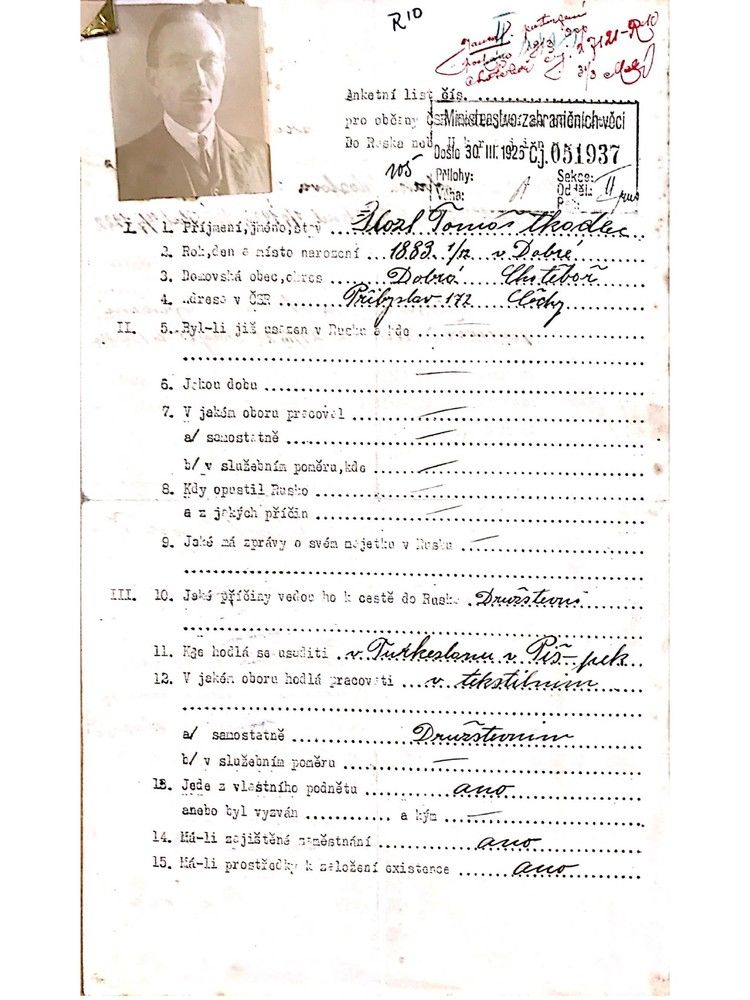 R10
27121-R10
Anketní list čís. ........
pro občany
Do Ruska
Ministerstvo zahraničních věcí
Došlo 30 III. 1925 Čj. 051937
Přílohy: Sekce:
Odděl. II
I. 1. Příjmení, jméno, stav Kozl Tomáš tkadlec
2. Rok, den a místo narození 1883. 1/12 v Dobré
3. Domovská obec, okres Dobrá Chotěboř
4. Adresa v ČSR Přibyslav 172 Čechy
II. 5. Byl-li již usazen v Rusku a kde
6. Jakou dobu
7. V jakém oboru pracoval
a/ samostatně
b/ v služebním poměru, kde
8. Kdy opustil Rusko
a z jakých příčin
9. Jaké má zprávy o svém majetku v Rusku
III. 10. Jaké příčiny vedou ho k cestě do Ruska Družstevní
11. Kde hodlá se usaditi v Turkestanu v Piš-pek
12. V jakém oboru hodlá pracovati v tekstilnim
a/ samostatně Družstevnim
b/ v služebním poměru —
13. Jede z vlastního podnětu ano
anebo byl vyzván ............ a kým —
14. Má-li zajištěné zaměstnání ano
15. Má-li prostředky k založení existence ano